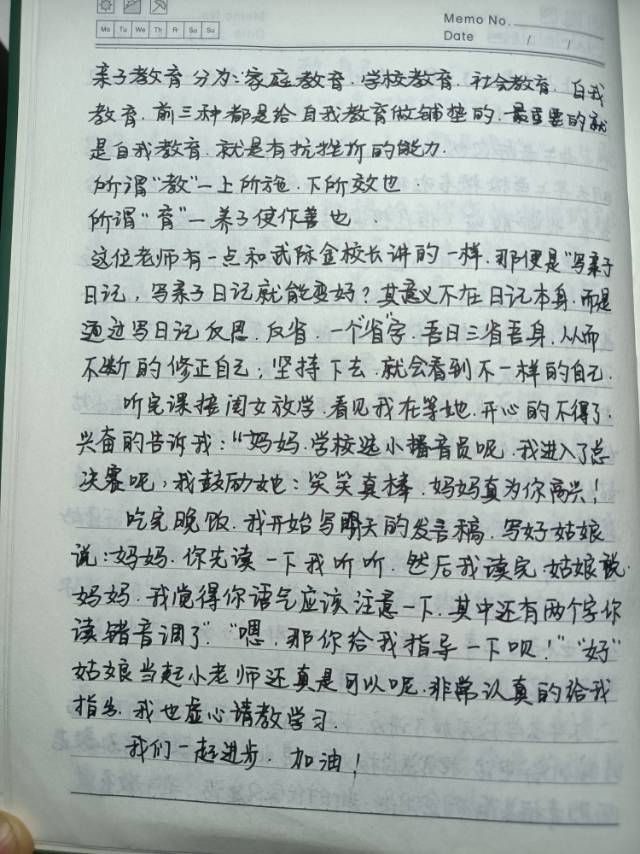 Memo No.
Mo Tu We Th Fr Sa Su
Date / /
亲子教育分为:家庭教育.学校教育.社会教育.自我
教育.前三种都是给自我教育做铺垫的.最重要的就
是自我教育.就是有抗挫折的能力.
所谓“教”一上所施.下所效也.
所谓“育”一养子使作善也.
这位老师有一点和武际金校长讲的一样.那便是“写亲子
日记,写亲子日记就能变好?其意义不在日记本身.而是
通过写日记反思.反省.一个“省”字.吾日三省吾身.从而
不断的修正自己;坚持下去.就会看到不一样的自己.
听完课接闺女放学.看见我在等她.开心的不得了.
兴奋的告诉我:“妈妈.学校选小播音员呢.我进入了总
决赛呢,我鼓励她:笑笑真棒.妈妈真为你高兴!
吃完晚饭.我开始写明天的发言稿.写好姑娘
说:妈妈.你先读一下我听听.然后我读完.姑娘说.
妈妈.我觉得你语气应该注意一下.其中还有两个字你
读错音调了”“嗯.那你给我指导一下呗!”“好”
姑娘当起小老师还真是可以呢.非常认真的给我
指出.我也虚心请教学习.
我们一起进步.加油!